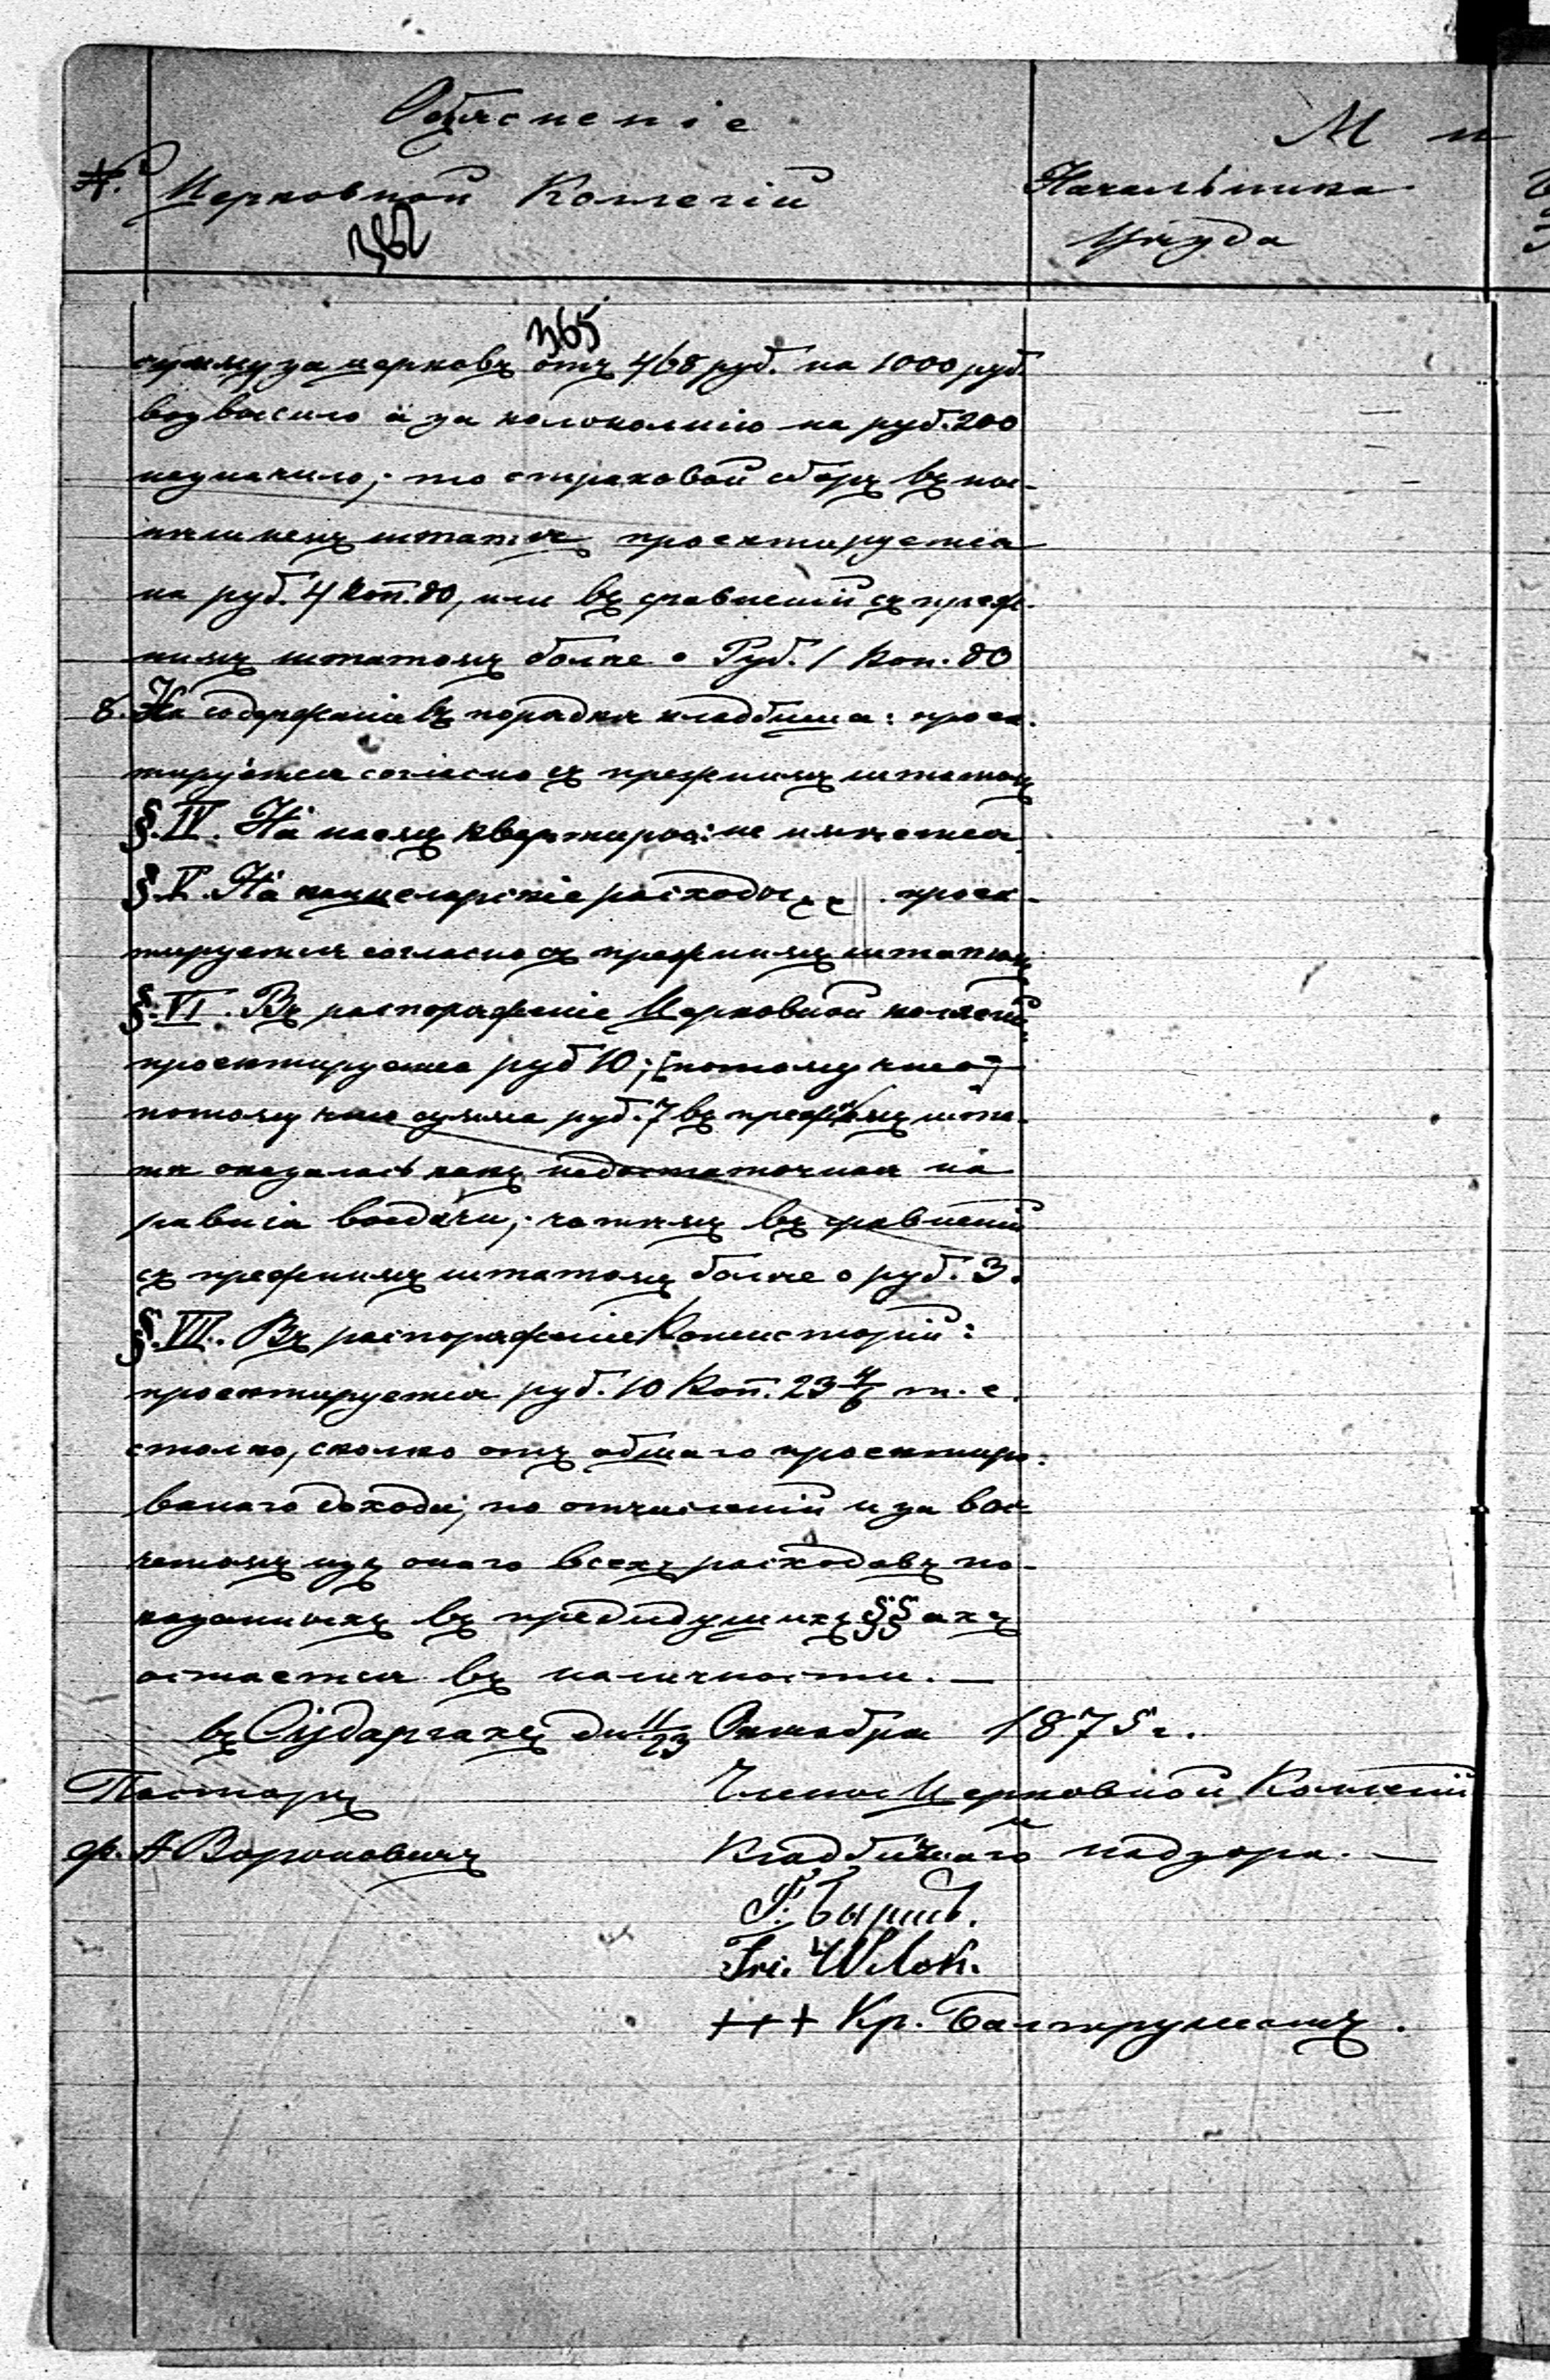 Обясненіе
М н
№ Церковной Коллегіи
Начальника
362
Уѣзда
365
сумму за церковъ отъ 468 руб. на 1000 руб.
возвысило а за колокольню на руб. 200
назначило; то страховой сборъ въ но-
нѣшнемъ штатѣ проектируется
на руб. 4 коп. 80, или въ сравненіи съ преж-
нимъ штатомъ болѣе о Руб. 1 Коп. 80
8. На содержаніе въ порядкѣ кладбища: проек-
тируется согласно съ прежнимъ штатомъ
§. IV. На наемъ квартиръ: не имѣется
§. V. На канцеларскіе расходы проек-
тируется согласно съ прежнимъ штатомъ
§. VI. Въ распоряженіе Церковной коллегіи
проектируется руб 10; [потому что]
потому что сумма руб. 7 въ прежнемъ шта-
тѣ оказалась какъ недостаточная на
равніа выдачи; чѣмъ въ сравненіи
съ прежнимъ штатомъ болѣе о руб. 3.
§. VII. Въ распоряженіе Консисторіи:
проектируется руб. 10 Коп. 23 т. е.
столко, сколко отъ общаго проектиро-
ванаго дохода, по отчисленіи и за вы-
четомъ изъ онаго всехъ расходовъ по-
казанныхъ въ предидущихъ §§ ахъ
остается въ наличности. —
въ Сударгахъ дн. 11/23 Октября 1875 г.
Пасторъ
Члены Церковной Коллегіи
ф. А Вороновичъ
и
Кладбищнаго надзора. —
Г. Бырит.
Fri. Wilok.
+++ Кр. Балтрушатъ.